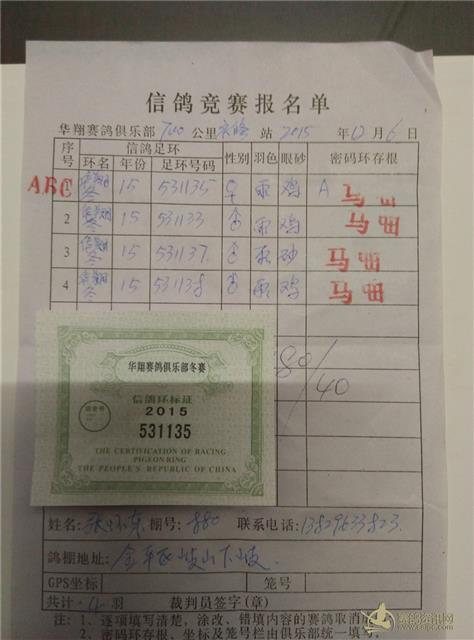 信鸽竞赛报名单
华翔赛鸽俱乐部 700 公里 站 2015 年 12 月 6 日
序号 信鸽足环 性别 羽色 眼砂 密码环存根
环名 年份 足环号码
ABC 1 华翔冬 15 531135 ♀ 雨 鸡 A
2 华翔冬 15 531133 雨 鸡
3 华翔冬 15 531137 雨 砂
4 华翔冬 15 531138 雨 鸡
80/40
华翔赛鸽俱乐部冬赛
信鸽环标证
2015
531135
THE CERTIFICATION OF RACING
PIGEON RING
THE PEOPLE'S REPUBLIC OF CHINA
姓名: 张环东 棚号: 880 联系电话: 13829633823
鸽棚地址: 金平区岐山下岐
GPS坐标 笼号
共计: 4 羽 裁判员签字(章)
注: 1、逐项填写清楚, 涂改、错填内容的赛鸽取消
2、密码环存根、坐标及笼号栏由俱乐部统一填写。